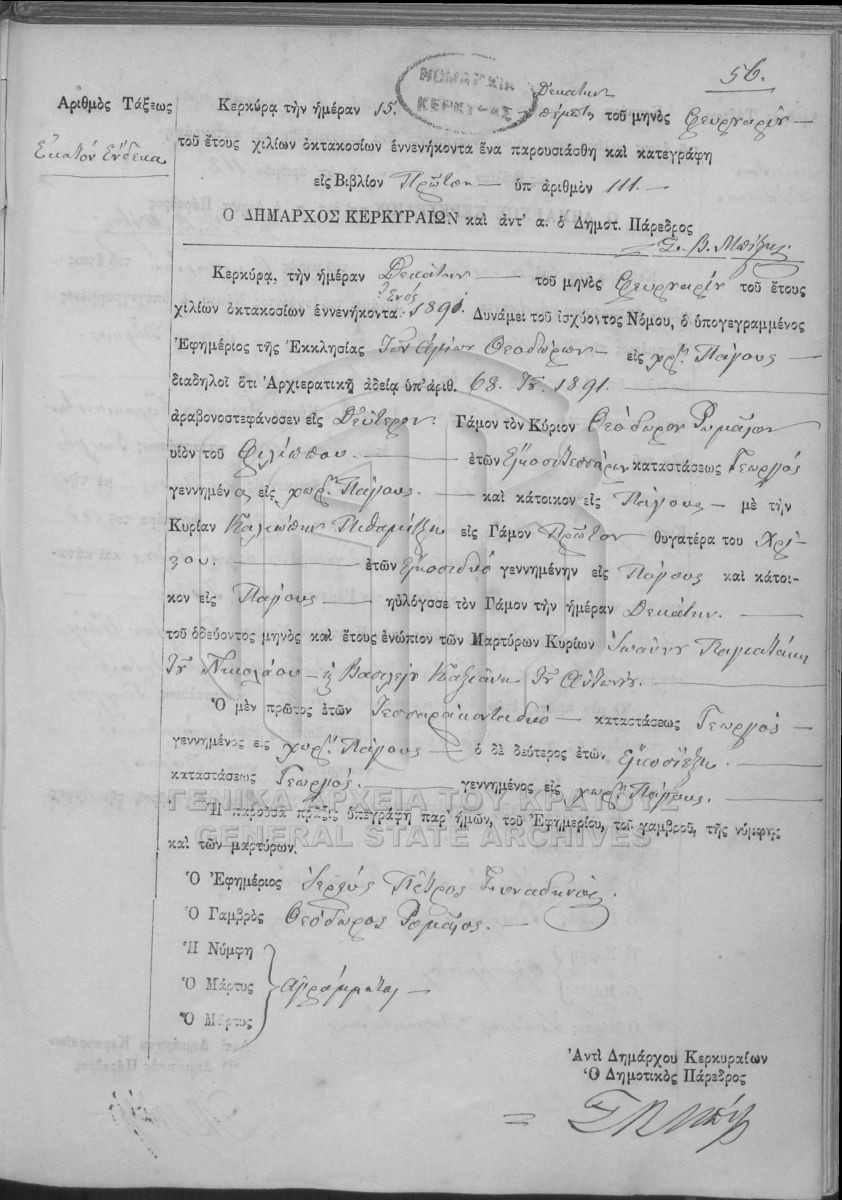 56.
ΝΟΜΑΡΧΙΑ ΚΕΡΚΥΡΑΣ
Ἀριθμὸς Τάξεως
Ἑκατόν Ἕνδεκα
Κερκύρᾳ τὴν ἡμέραν 15. Δεκάτην πέμπτη τοῦ μηνὸς Φευρουαρίου —
τοῦ ἔτους χιλίων ὀκτακοσίων ἐννενήκοντα ἕνα παρουσιάσθη καὶ κατεγράφη
εἰς Βιβλίον Πρῶτον — ὑπ' ἀριθμὸν 111. —
Ο ΔΗΜΑΡΧΟΣ ΚΕΡΚΥΡΑΙΩΝ καὶ ἀντ' α. ὁ Δημοτ. Πάρεδρος
Κερκύρᾳ, τὴν ἡμέραν Δεκάτην — τοῦ μηνὸς Φευρουαρίου τοῦ ἔτους
χιλίων ὀκτακοσίων ἐννενήκοντα ἑνός 1891. Δυνάμει τοῦ ἰσχύοντος Νόμου, ὁ ὑπογεγραμμένος
Ἐφημέριος τῆς Ἐκκλησίας τῶν Ἁγίων Θεοδώρων — εἰς χωρ. Πάγους —
διαδηλοῖ ὅτι Ἀρχιερατικῇ ἀδείᾳ ὑπ' ἀριθ. 68. 1891. —
ἀραβονοστεφάνοσεν εἰς Δεύτερον. Γάμον τὸν Κύριον Θεόδωρον Ρωμαῖον
υἱὸν τοῦ Φιλίππου. — ἐτῶν Εἰκοσιτεσσάρων καταστάσεως Γεωργός
γεννημένος εἰς χωρ. Πάγους. — καὶ κάτοικον εἰς Πάγους — μὲ τὴν
Κυρίαν Καλιώπην εἰς Γάμον Πρῶτον θυγατέρα του
— ἐτῶν Εἰκοσιδυό γεννημένην εἰς Πάγους καὶ κάτοι-
κον εἰς Πάγους — ηὐλόγσσε τὸν Γάμον τὴν ἡμέραν Δεκάτην. —
τοῦ ὁδεύοντος μηνὸς καὶ ἔτους ἐνώπιον τῶν Μαρτύρων Κυρίων Ἰωάννου
τοῦ Νικολάου — Βασιλείου τοῦ Ἀντωνίου. —
Ὁ μὲν πρῶτος ἐτῶν Τεσσαρακονταδυό — καταστάσεως Γεωργός —
γεννημένος εἰς χωρ. Πάγους — ὁ δὲ δεύτερος ἐτῶν Εἰκοσιέξη. —
καταστάσεως Γεωργός. — γεννημένος εἰς χωρ. Πάγους. —
ΓΕΝΙΚΑ ΑΡΧΕΙΑ ΤΟΥ ΚΡΑΤΟΥΣ
Ἡ παροῦσα πρᾶξις ὑπεγράφη παρ' ἡμῶν, τοῦ Ἐφημερίου, τοῦ γαμβροῦ, τῆς νύμφης
GENERAL STATE ARCHIVES
καὶ τῶν μαρτύρων.
Ὁ Ἐφημέριος Ἱερεύς Πέτρος Συναδηνός.
Ὁ Γαμβρὸς Θεόδωρος Ρομαῖος. —
Ἡ Νύμφη
Ὁ Μάρτυς ἀγράμματοι —
Ὁ Μάρτυς
Ἀντὶ Δημάρχου Κερκυραίων
Ὁ Δημοτικὸς Πάρεδρος